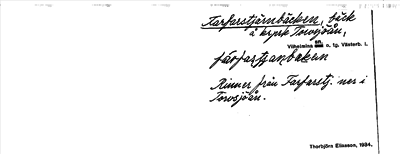 Farfarstjärnbäcken, bäck
å krpsk Torvsjöån,
Vilhelmina sn o. tg. Västerb. l.
fárfarstjanbäkən
Rinner från Farfarstj. ner i
Torvsjöån.
Thorbjörn Eliasson, 1984.